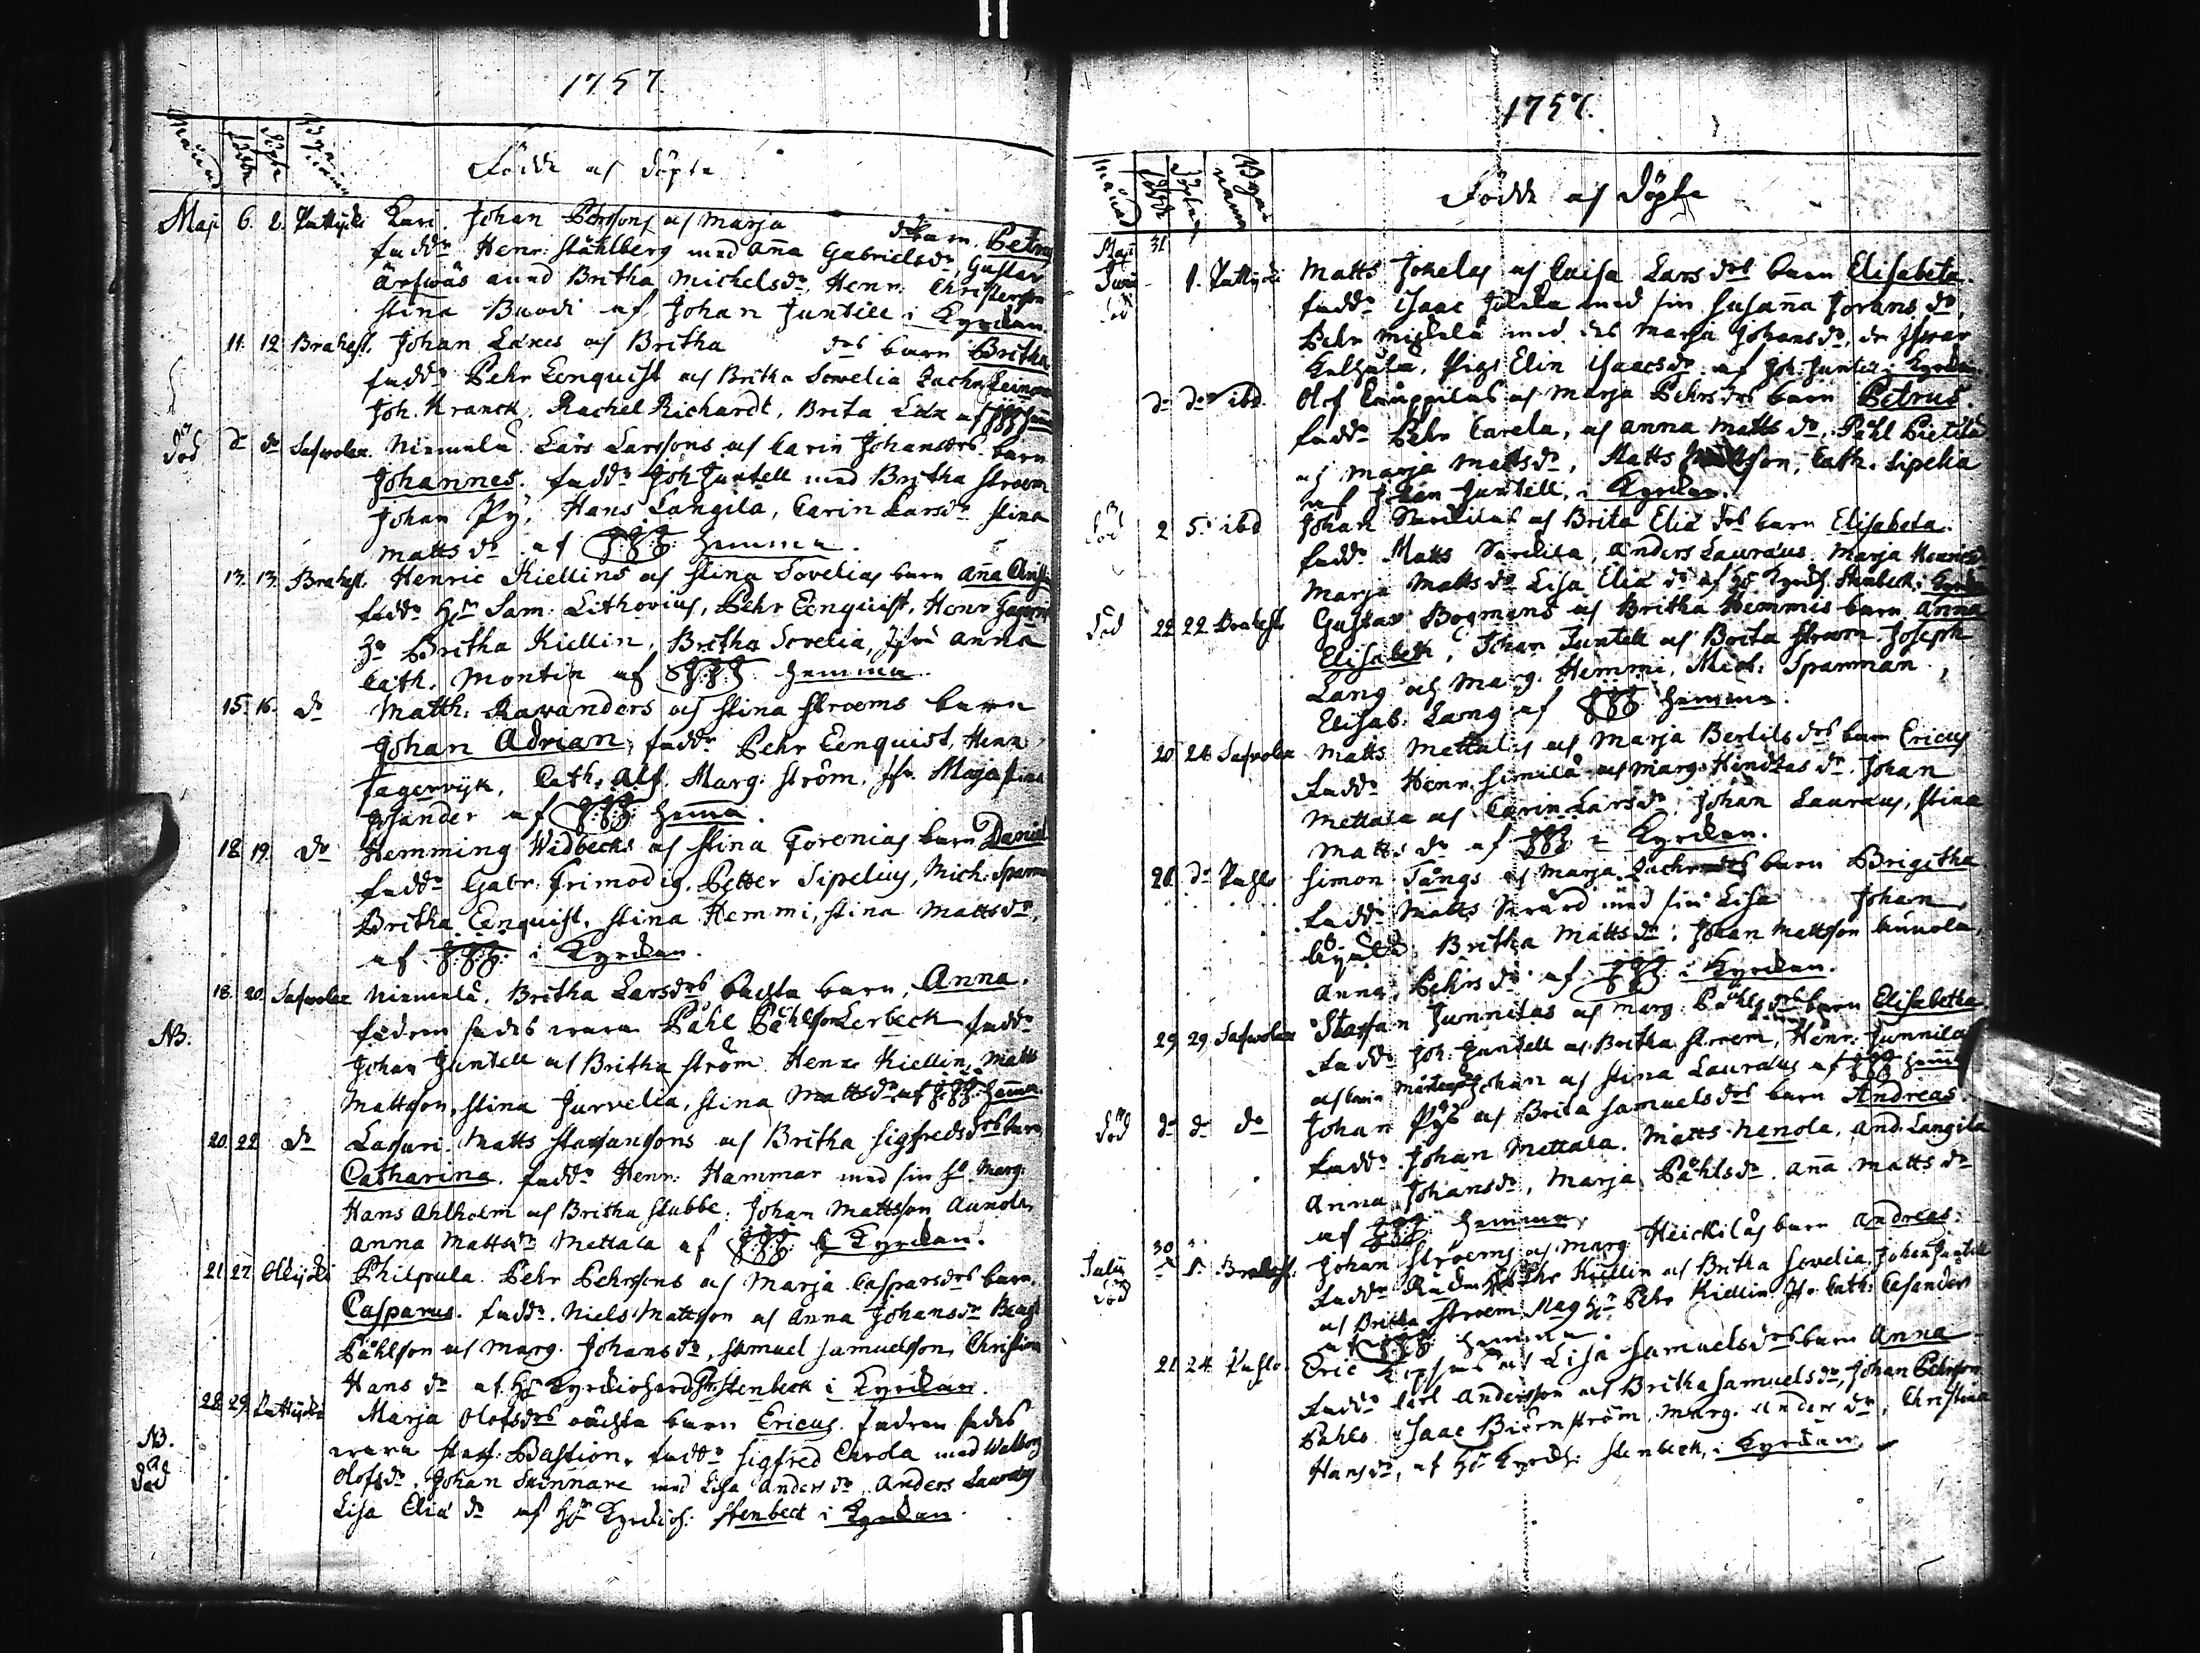 1757
Månad födde döpte Byanamn
Födde och döpte
Maji 6. 8. Pattijoki Kari Johan Perssons och Marja dr barn Petrus
fadd:r Henr: Ståhlberg med Aña Gabrielsdr, Gustav
med Britha Michelsdr, Henr: Christerson
Stina Buudi af Johan Juntill i Kyrckan
11. 12 Brahest. Johan Laxes och Britha drs barn Britha
fadd:r Pehr Eenquist och Britha Sovelia Zachr
Joh. Kranck. Rachel Richardt, Brita Lax af
död do do Salwolax Niemelä Lars Larssons och Carin Johansdrs barn
Johannes. fadd:r Joh Juntell med Britha Stroem
Johan Pÿ, Hans Langila, Carin Larsdr Stina
Mattsdr af hemma.
13. 13. Brahest. Henric Kiellins och Stina Sovelias barn Aña
fadd:r Hr Sam: Lithovius, Pehr Eenquist, Henr
Britha Kiellin, Britha Sovelia, Jfru Anna
Cath. Montin af hemma.
15. 16. do Matth: Ravanders och Stina Stroems barn
Johan Adrian, fadd:r Pehr Eenquist, Henr
Fagervijk, Cath: Alf. Marg: Ström. Jfr. Maja Stina
af hema.
18 19. do Hemming Widbecks och Stina Forenias barn Daniel
fadd:r Gabr: Frimodig, Petter Sipelius, Mich: Spamman
Britha Eenquist, Stina Hemmi, Stina Mattsdr,
af i Kyrckan.
18. 20. Salwolax Niemelä. Britha Larsdrs oächta barn, Anna.
NB. fadren sades wara Påhl Påhlson Lerbeck fadd:r
Johan Juntell och Britha Ström Henr Kiellin, Matts
Mattson, Stina Jurvelia, Stina Mattsdr af hema.
20. 22 do Lassari. Matts Staffansons och Britha Sigfredsdrs barn
Catharina. fadd:r Henr: Hammar med sin h. Marg:
Hans Ahlholm och Britha Stubbe. Johan Mattsson Aunola,
Anna Mattsdr Mettala af i Kyrckan.
21 27. Olkijoki Philpula Pehr Pehrssons och Marja Casparsdrs barn
Casparus. fadd:r Niels Mattson och Anna Johansdr Bengt
Påhlson och Marg. Johansdr, Samuel Samuelson, Christina
Hansdr af Hr Kyrckioherd Stenbeck i Kyrckan.
28. 29. Pattijoki Marja Olofsdrs oächta barn Ericus fadren sades
NB. wara Staff: Bastion, fadd:r Sigfred Chrola med Walborg
död Olofsdr, Johan Skinnare med Lisa Andersdr, Anders Lauraeus
Lisa Eliædr af Hr Kyrckioh: Stenbeck i Kyrckan.
1757.
Månad födde döpte Byanamn
Födde och döpte
Maji 31
Juni 1. Pattijoki Matts Jokelas och Caisa Larsdrs barn Elisabeta.
död fadd:r Isaac Jokela med sin Susaña Joransdr,
Pehr Mickelä med des Marja Johansdr, dr
Piga Elin Isaacsdr af Joh: Juntell i Kyrckan
do do ibd. Olof Cauppilas och Marja Pehrsdrs barn Petrus
fadd:r Pehr Carela, och Anna Mattsdr, Påhl Pietilä
och Marja Mattsdr, Matts son, Cath. Sipelia
af Johan Juntell, i Kyrckan.
död 2 5. ibd Johan och Brita Eliædrs barn Elisabeta.
fadd:r Matts Anders Lauraeus Marja Henricsdr
Marja Mattsdr Lisa Eliædr af Hr Kyrckh. Stenbeck i Kyrckan
död 22 22 Brahest. Gustav Bogmans och Britha Hemmis barn Anna
Elisabeth, Johan Juntell och Brita Stroem Joseph
Lang och Marg. Hemmi, Mich: Spamman,
Elisab: Lang af hemma.
20 24 Salwolax Matts Mettalas och Marja Bertilsdrs barn Ericus
fadd:r Henr. Similä och Marg: Hindricsdr. Johan
Mettala och Carin Larsdr. Johan Lauraeus, Stina
Mattsdr af i Kyrckan.
20. do Pahlo Simon Tångs och Marja Zachrisdrs barn Brigitha
fadd:r Matts med sin Lisa Johan
Britha Mattsdr, Johan Mattson Aunola,
Anna Pehrsdr af i Kyrckan.
29 29. Salwolax Staffan Junnilas och Marg: Påhlsdrs barn Elisabetha
fadd:r Joh: Juntell och Britha Stroem, Henr: Junnila
och Carin Mårtensdr Johan och Stina Lauraeus af hema
död do do do Johan Pÿs och Brita Samuelsdrs barn Andreas.
fadd:r Johan Mettala. Matts Nenola, And: Langila
Anna Johansdr, Marja Påhlsdr. Aña Mattsdr
af hemma.
30
Julii 1. Brahest. Johan Stroems och Marg Heickiläs barn Andreas.
död fadd:r Pehr Kiellin och Britha Sovelia. Johan Juntell
och Britha Stroem Mag Hr Pehr Kiellin Jfr. Cath: Cajander
af hemma.
21 24. Pahlo. Eric och Lisa Samuelsdrs barn Anna
fadd:r Carl Andersson och Britha Samuelsdr, Johan Pehrson
Pahlo Isaac Biörnström, Marg. Andersdr, Christina
Hansdr, af Hr Kyrckh: Stenbeck, i Kyrckan.